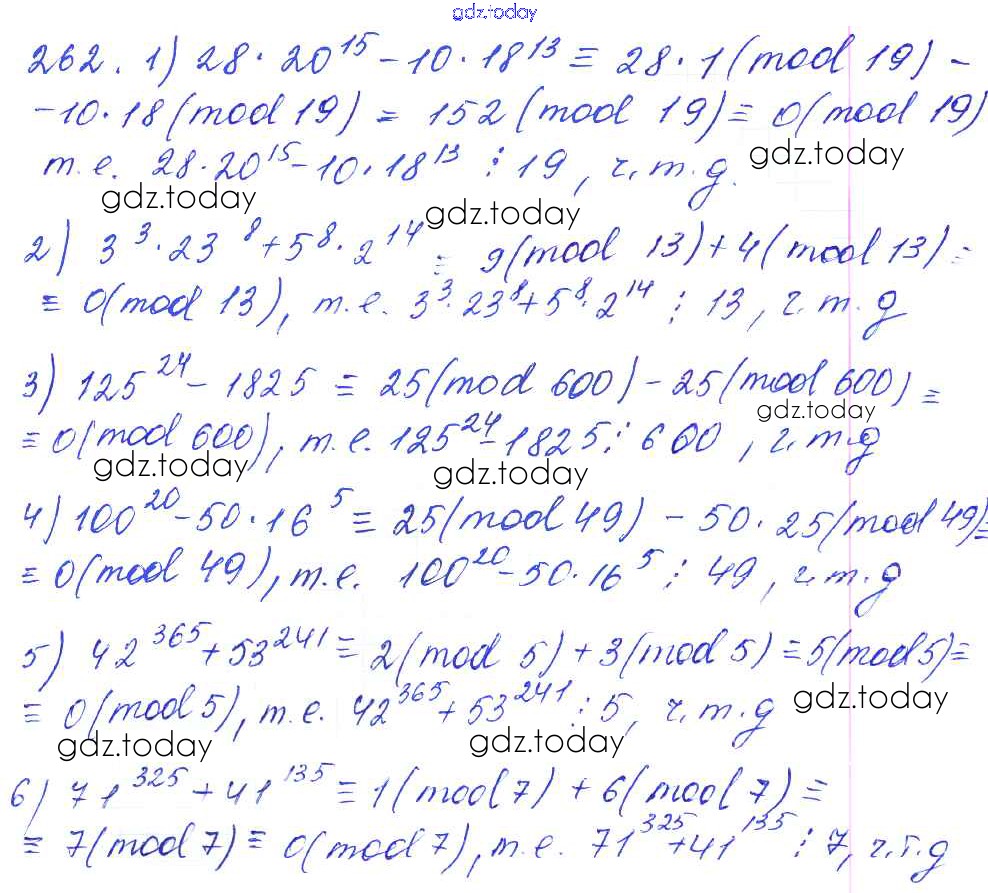 gdz.today
262. 1) 28 · 20¹⁵ - 10 · 18¹³ ≡ 28 · 1 (mod 19) -
- 10 · 18 (mod 19) = 152 (mod 19) ≡ 0 (mod 19)
gdz.today
т.е. 28 · 20¹⁵ - 10 · 18¹³ ⋮ 19, ч.т.д.
gdz.today
gdz.today
2) 3³ · 23⁸ + 5⁸ · 2¹⁴ ≡ 9 (mod 13) + 4 (mod 13) ≡
≡ 0 (mod 13), т.е. 3³ · 23⁸ + 5⁸ · 2¹⁴ ⋮ 13, ч.т.д
3) 125²⁴ - 1825 ≡ 25 (mod 600) - 25 (mod 600) ≡
gdz.today
≡ 0 (mod 600), т.е. 125²⁴ - 1825 ⋮ 600, ч.т.д
gdz.today
gdz.today
4) 100²⁰ - 50 · 16⁵ ≡ 25 (mod 49) - 50 · 25 (mod 49) ≡
≡ 0 (mod 49), т.е. 100²⁰ - 50 · 16⁵ ⋮ 49, ч.т.д
5) 42³⁶⁵ + 53²⁴¹ ≡ 2 (mod 5) + 3 (mod 5) ≡ 5 (mod 5) ≡
≡ 0 (mod 5), т.е. 42³⁶⁵ + 53²⁴¹ ⋮ 5, ч.т.д
gdz.today
gdz.today
gdz.today
6) 71³²⁵ + 41¹³⁵ ≡ 1 (mod 7) + 6 (mod 7) ≡
≡ 7 (mod 7) ≡ 0 (mod 7), т.е. 71³²⁵ + 41¹³⁵ ⋮ 7, ч.т.д